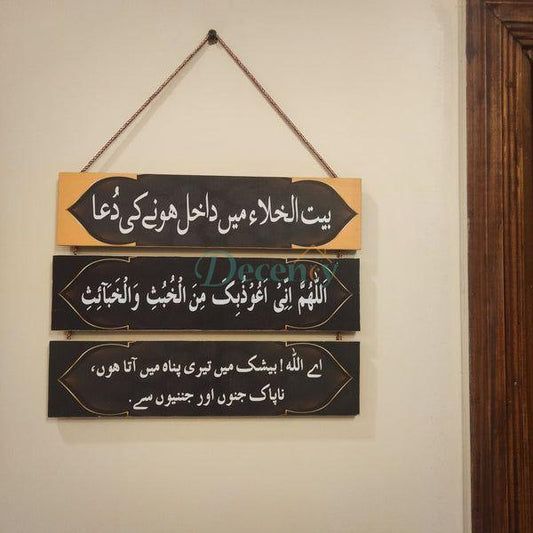 بیت الخلاء میں داخل ہونے کی دُعا
اَللّٰهُمَّ اِنِّیْ اَعُوْذُبِکَ مِنَ الْخُبُثِ وَالْخَبَآئِثِ
Decency
اے اللہ! بیشک میں تیری پناہ میں آتا ہوں،
ناپاک جنوں اور جننیوں سے۔